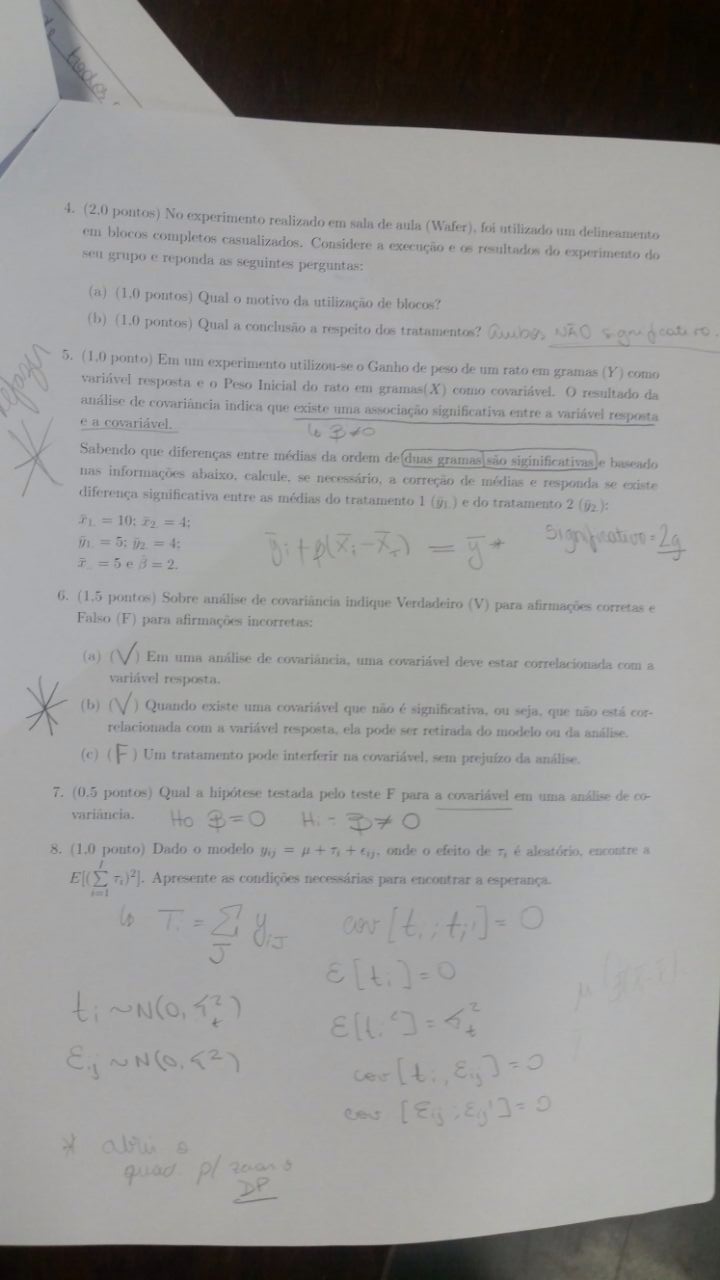 de
4. (2,0 pontos) No experimento realizado em sala de aula (Wafer), foi utilizado um delineamento
em blocos completos casualizados. Considere a execução e os resultados do experimento do
seu grupo e reponda as seguintes perguntas:
(a) (1,0 pontos) Qual o motivo da utilização de blocos?
(b) (1,0 pontos) Qual a conclusão a respeito dos tratamentos? Ambos NÃO significativo.
refazer
5. (1,0 ponto) Em um experimento utilizou-se o Ganho de peso de um rato em gramas (Y) como
variável resposta e o Peso Inicial do rato em gramas(X) como covariável. O resultado da
análise de covariância indica que existe uma associação significativa entre a variável resposta
e a covariável. ↳ β≠0
Sabendo que diferenças entre médias da ordem de duas gramas são siginificativas e baseado
nas informações abaixo, calcule, se necessário, a correção de médias e responda se existe
diferença significativa entre as médias do tratamento 1 (ȳ₁.) e do tratamento 2 (ȳ₂.):
x̄₁. = 10; x̄₂. = 4;
ȳ₁. = 5; ȳ₂. = 4; ȳi + β(x̄i - x̄..) = ȳ* Significativo = 2g
x̄.. = 5 e β̂ = 2.
6. (1,5 pontos) Sobre análise de covariância indique Verdadeiro (V) para afirmações corretas e
Falso (F) para afirmações incorretas:
(a) (V) Em uma análise de covariância, uma covariável deve estar correlacionada com a
variável resposta.
(b) (V) Quando existe uma covariável que não é significativa, ou seja, que não está cor-
relacionada com a variável resposta, ela pode ser retirada do modelo ou da análise.
(c) (F) Um tratamento pode interferir na covariável, sem prejuízo da análise.
7. (0,5 pontos) Qual a hipótese testada pelo teste F para a covariável em uma análise de co-
variância. Ho β=0 Hi = β≠0
8. (1,0 ponto) Dado o modelo yᵢⱼ = μ + τᵢ + ϵᵢⱼ, onde o efeito de τᵢ é aleatório, encontre a
E[(∑ᵢ₌₁ᴵ τᵢ)²]. Apresente as condições necessárias para encontrar a esperança.
↳ Ti = ∑J yiJ cov[ti ; ti'] = 0
E[ti] = 0
ti ~ N(0, σ²t) E[ti²] = σ²t
εij ~ N(0, σ²) cov[ti, εij] = 0
cov [εij ; εij'] = 0
* abrir o
quad p/
DP